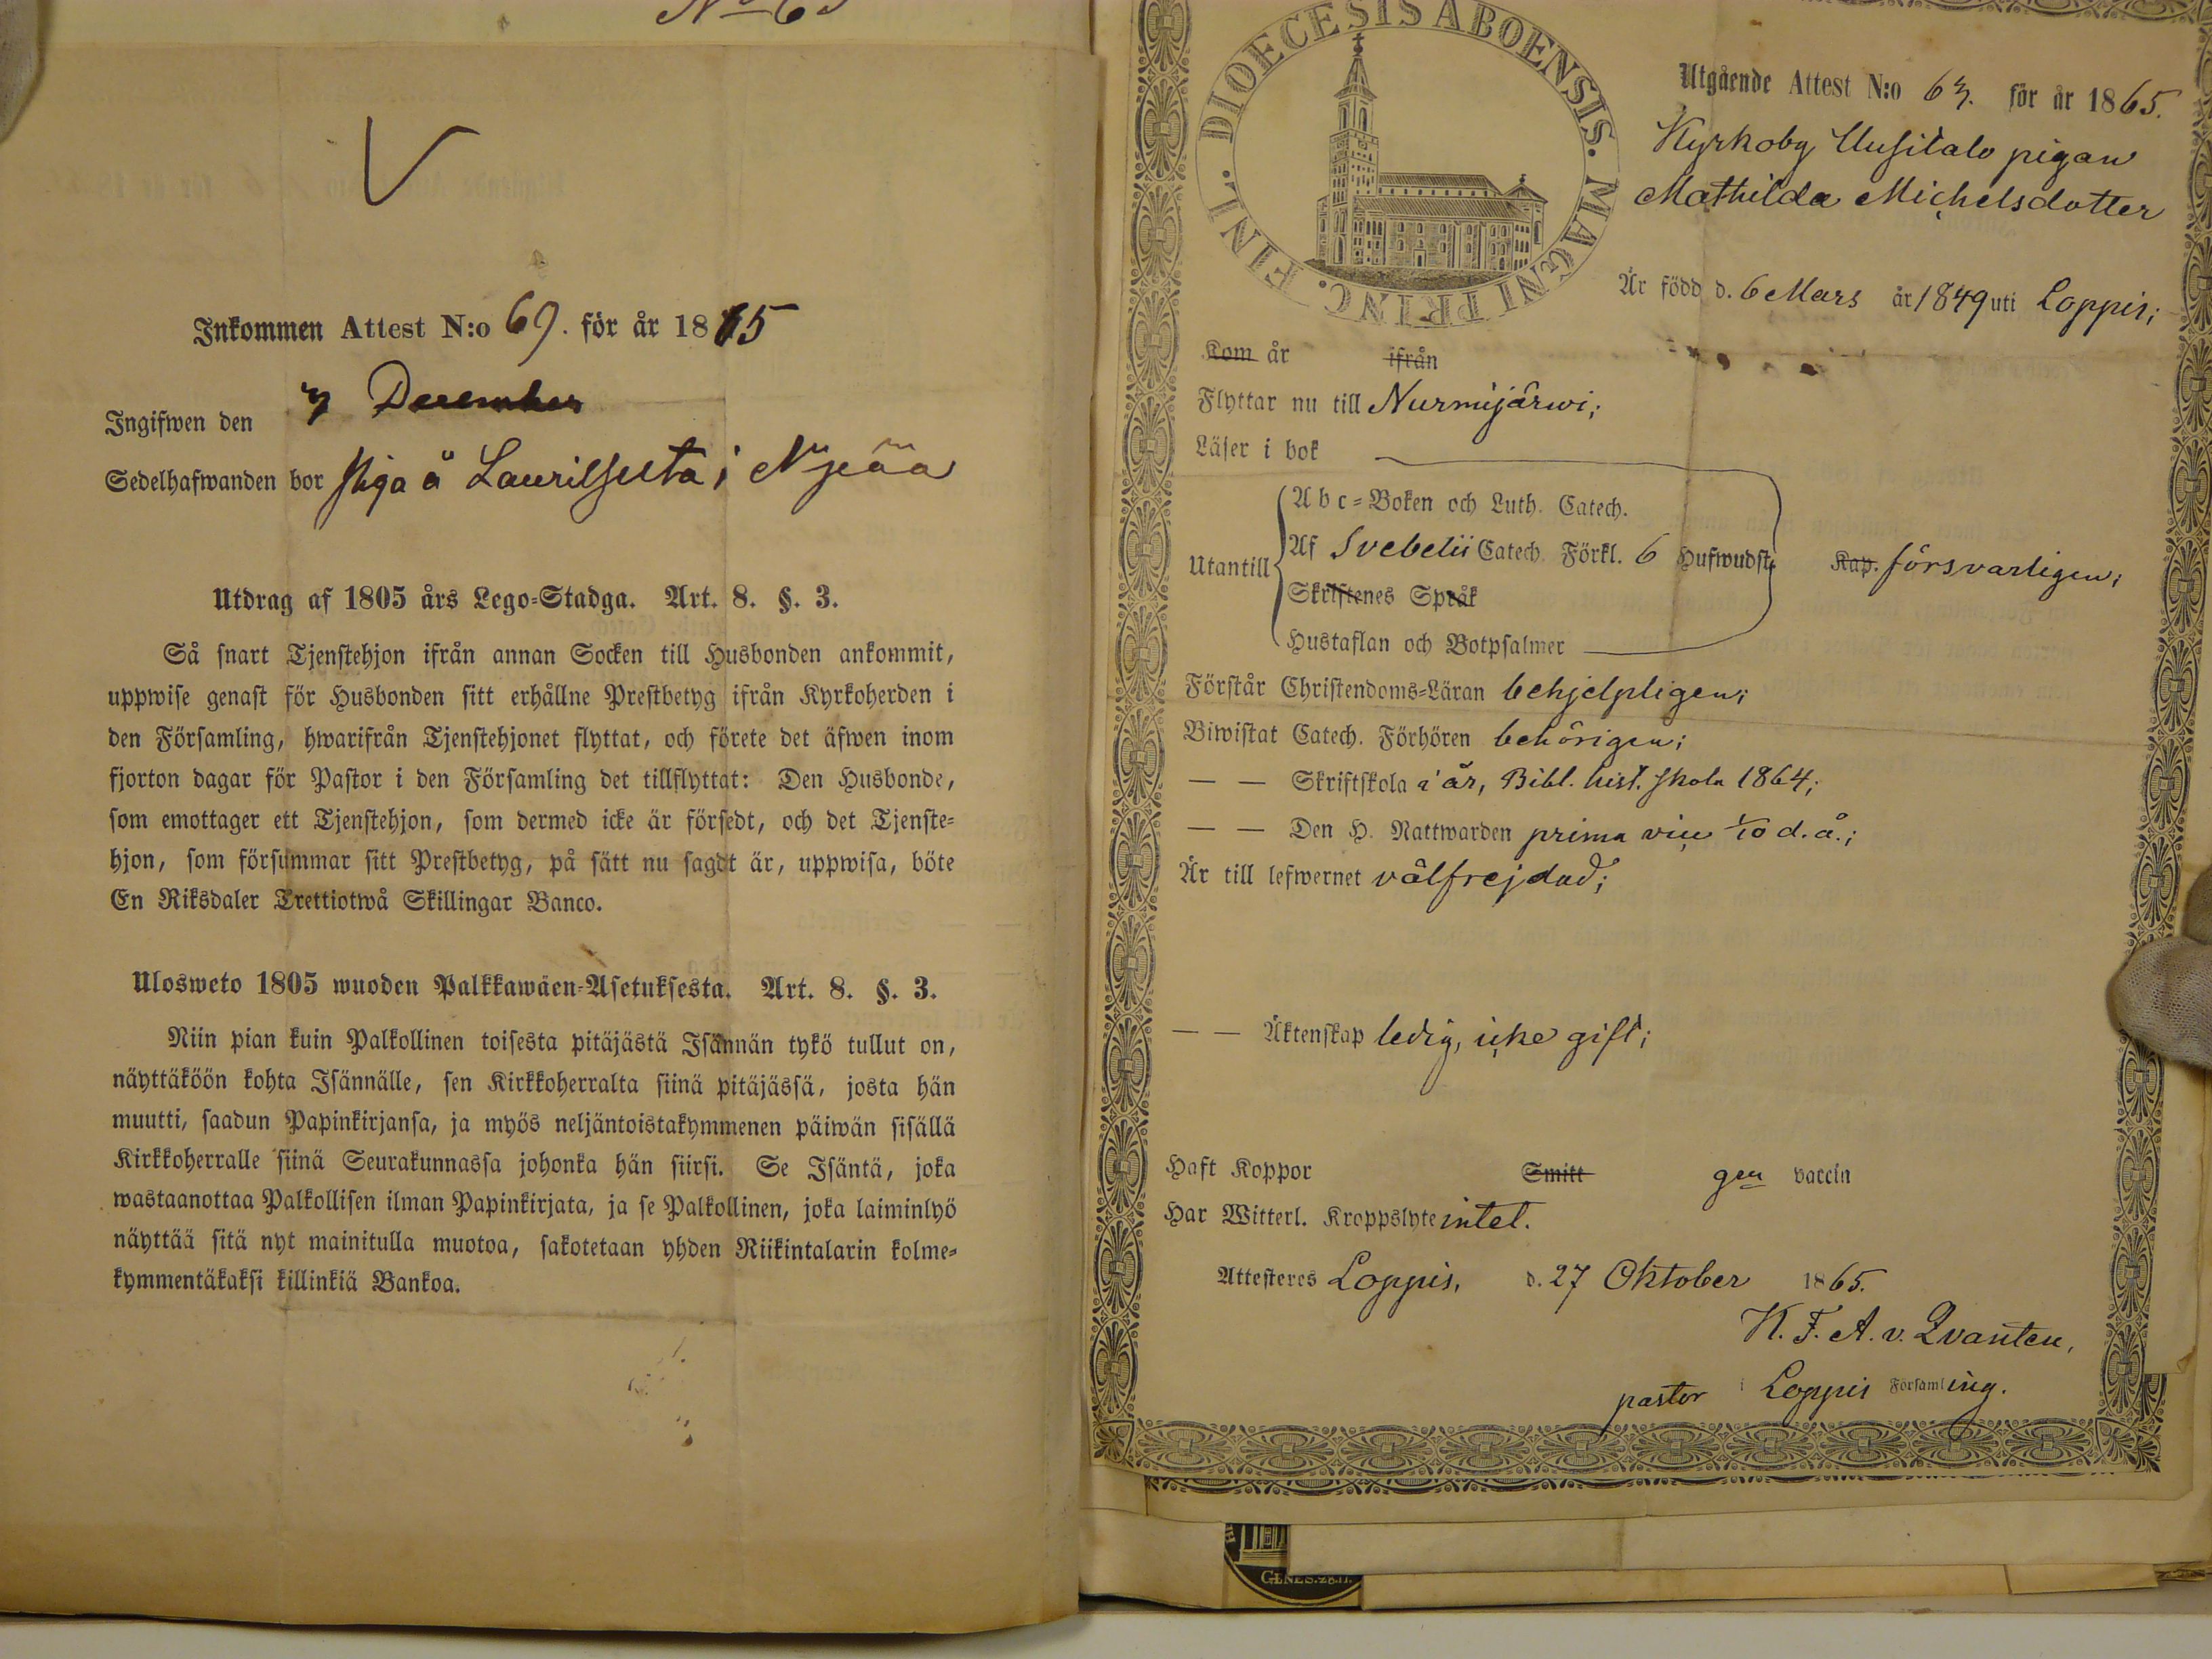 Inkommen Attest N:o 69. för år 1865
Ingifwen den 3 December
Sedelhafwanden bor Piga å Laurilsuta i Njeää
Utdrag af 1805 års Lego-Stadga. Art. 8. §. 3.
Så snart Tjenstehjon ifrån annan Socken till Husbonden ankommit,
uppwise genast för Husbonden sitt erhållne Prestbetyg ifrån Kyrkoherden i
den Församling, hwarifrån Tjenstehjonet flyttat, och förete det äfwen inom
fjorton dagar för Pastor i den Församling det tillflyttat: Den Husbonde,
som emottager ett Tjenstehjon, som dermed icke är försedt, och det Tjenste-
hjon, som försummar sitt Prestbetyg, på sätt nu sagdt är, uppwisa, böte
En Riksdaler Trettiotwå Skillingar Banco.
Ulosweto 1805 wuoden Palkkawäen-Asetuksesta. Art. 8. §. 3.
Niin pian kuin Palkollinen toisesta pitäjästä Isännän tykö tullut on,
näyttäköön kohta Isännälle, sen Kirkkoherralta siinä pitäjässä, josta hän
muutti, saadun Papinkirjansa, ja myös neljäntoistakymmenen päiwän sisällä
Kirkkoherralle siinä Seurakunnassa johonka hän siirsi. Se Isäntä, joka
wastaanottaa Palkollisen ilman Papinkirjata, ja se Palkollinen, joka laiminlyö
näyttää sitä nyt mainitulla muotoa, sakotetaan yhden Riikintalarin kolme-
kymmentäkaksi killinkiä Bankoa.
DIOECESIS ABOENSIS. MAGNI PRINC. FINL.
Utgående Attest N:o 63. för år 1865.
Kyrkoby Uusitalo pigan
Mathilda Michelsdotter
Är född d. 6 Mars år 1849 uti Loppis;
Kom år ifrån
Flyttar nu till Nurmijärwi;
Läser i bok
Utantill
Abc-Boken och Luth. Catech.
Af Svebelii Catech. Förkl. 6 Hufwudst. Kap. försvarligen;
Skriftenes Språk
Hustaflan och Botpsalmer
Förstår Christendoms-Läran behjelpligen;
Biwistat Catech. Förhören behörigen;
— — Skriftskola i år, Bibl. hist. skola 1864;
— — Den H. Nattwarden prima vice 1/10 d. å.;
Är till lefwernet välfrejdad;
— — Äktenskap ledig, icke gift;
Haft Koppor Smitt gen vaccin
Har Witterl. Kroppslyte intet.
Attesteres Loppis, d. 27 Oktober 1865.
K. F. A. v. Qvanten,
pastor i Loppis Församling.
GENES. 28.17.